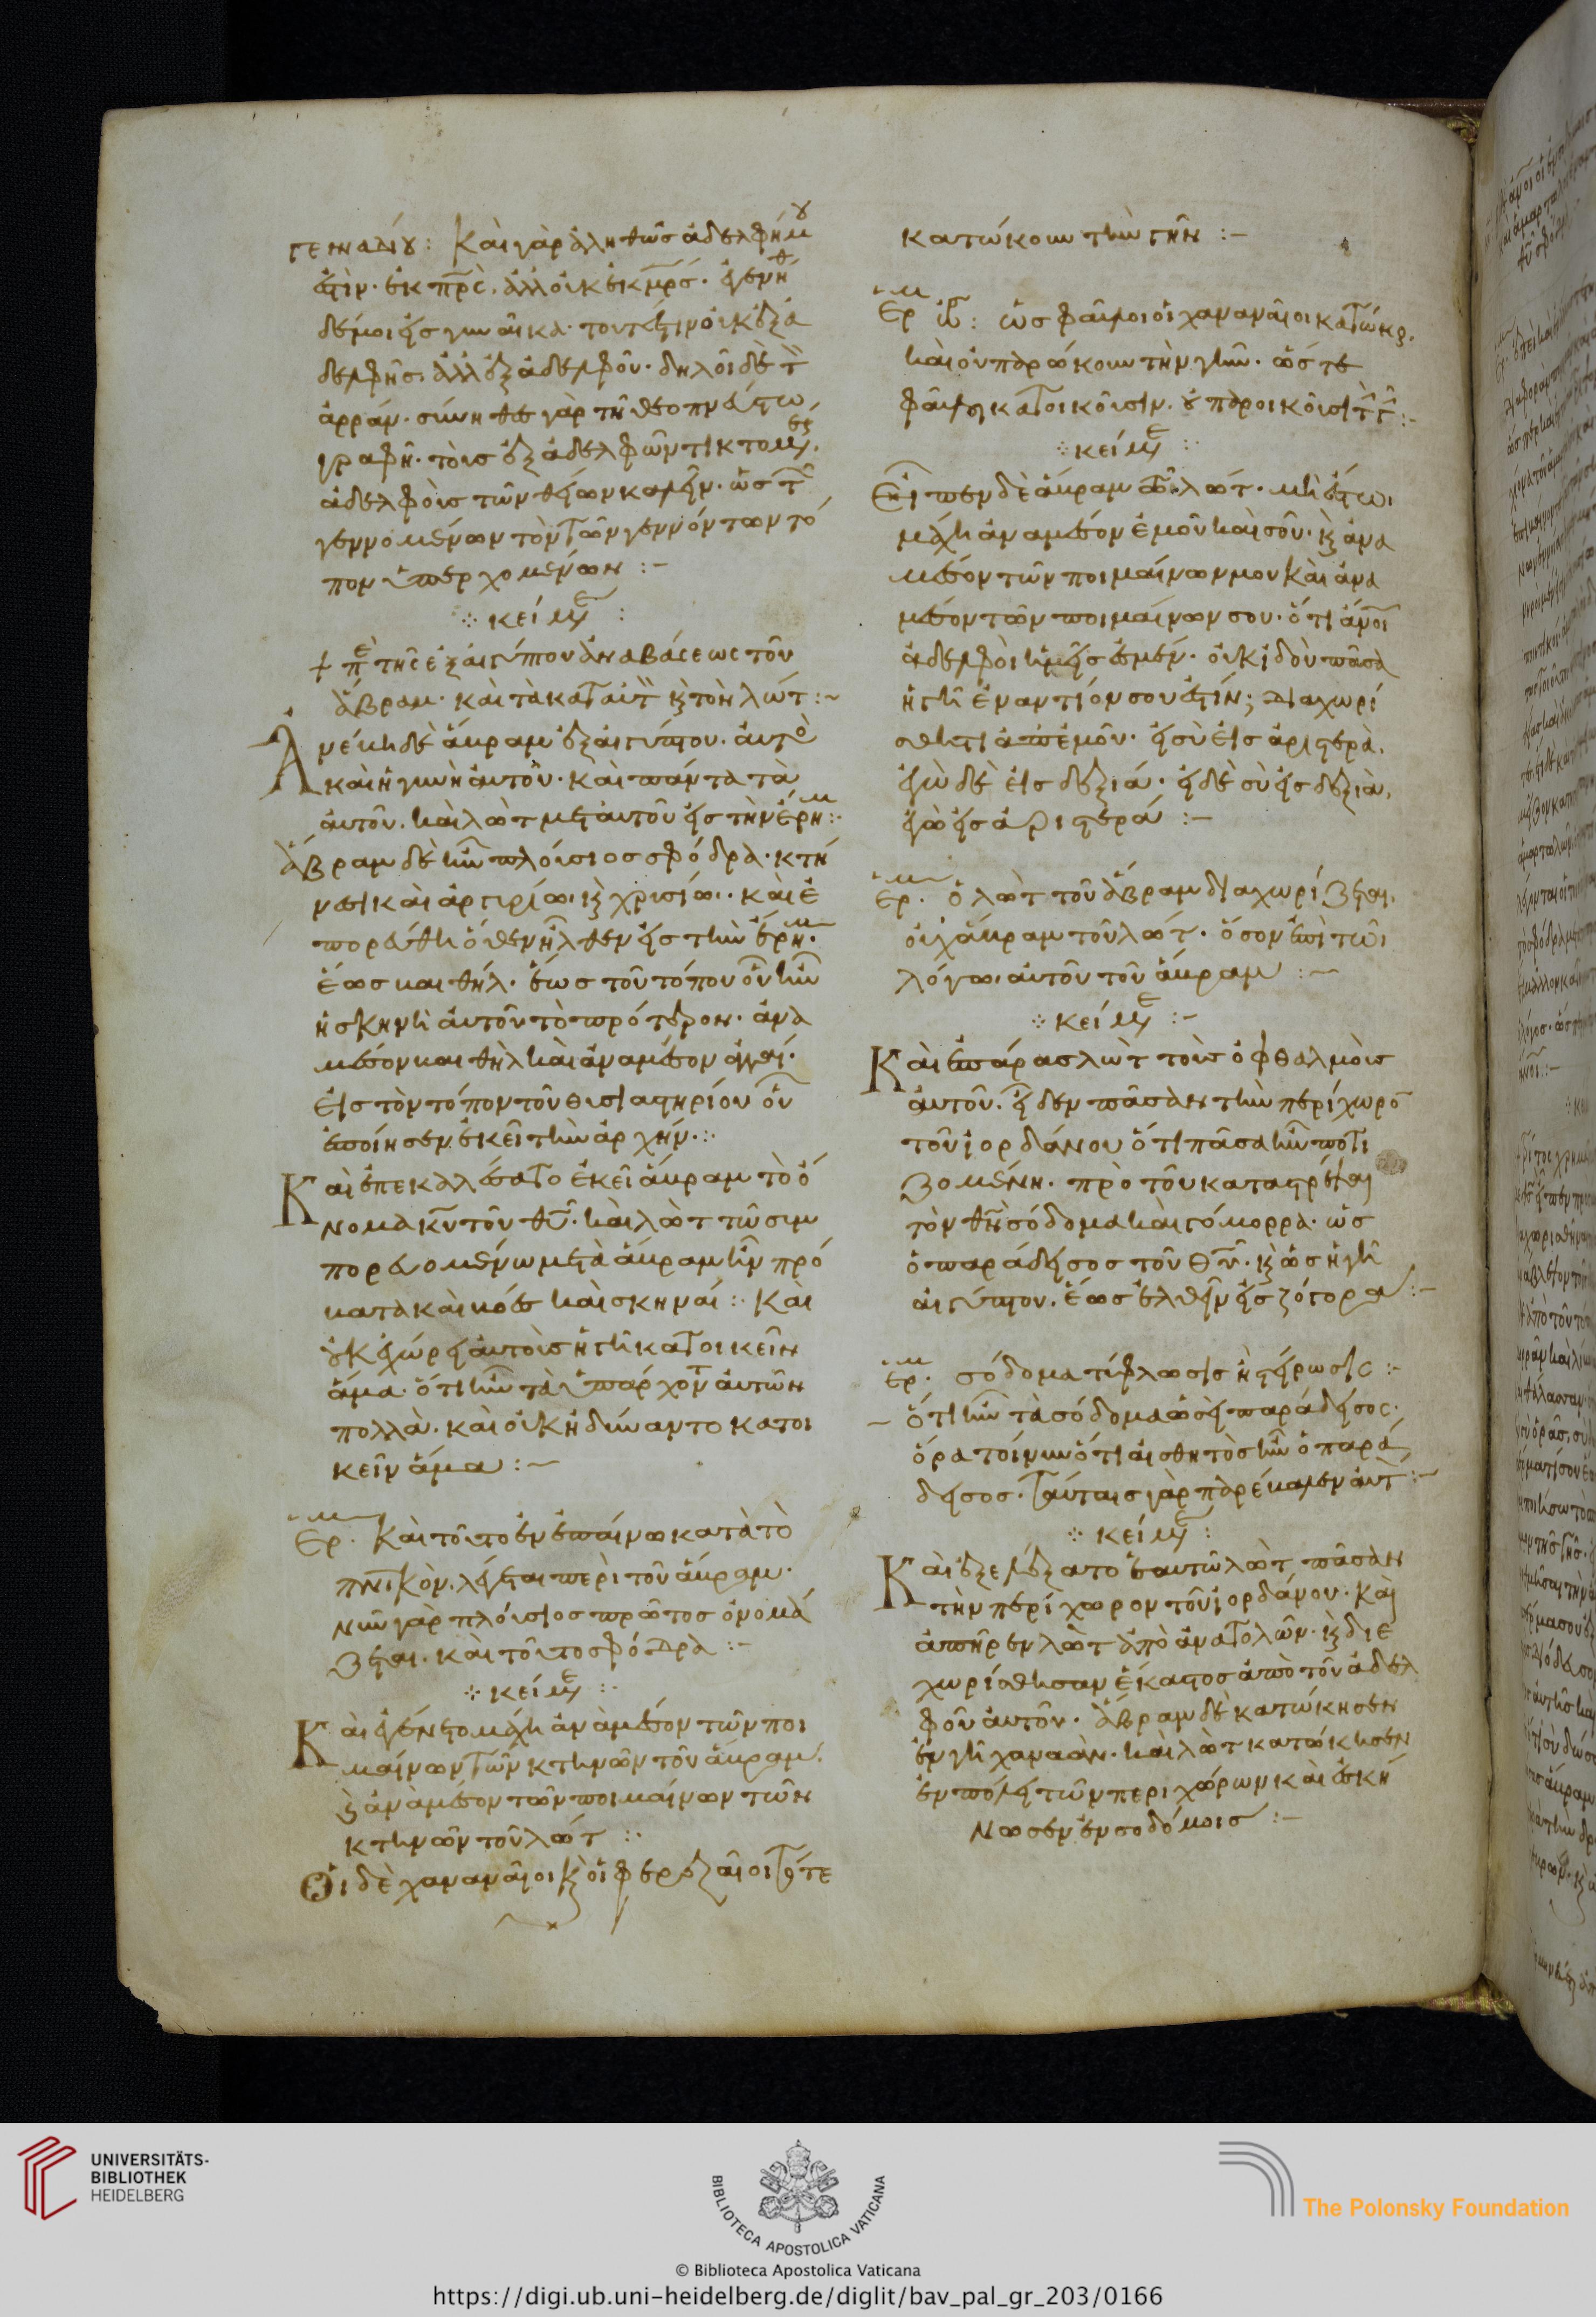 γεναδίου: Καὶ γὰρ ἀληθῶς ἀδελφή μου
ἐστὶν· ἐκ πρς. ἀλλ οὐκ ἐκ μρς· ἐγενήθ
δέ μοι εἰς γυναῖκα· τουτέστιν οὐκ ἐξ ἀ
δελφῆς· ἀλλ ἐξ ἀδελφοῦ· δηλοῖ δὲ τ
ἀρράν· σύνηθες γὰρ τῆ θεοπνεύστω
γραφῆ· τοὺς ἐξ ἀδελφῶν τικτομένους·
ἀδελφοὺς τῶν θείων καλεῖν· ὡς τ
γεννομένων τὸν τῶν γεννόντων τό
πον ὑπερχομένων :-
κείμε :
+ πε τῆς ἐξ αἰγύπτου ἀναβάσεως τοῦ
ἄβραμ· καὶ τὰ κατ αὐτ καὶ τὸν λώτ :~
Ἀνέβη δὲ ἄβραμ ἐξ αἰγύπτου. αὐτὸ
καὶ ἡ γυνὴ αὐτοῦ· καὶ πάντα τὰ
αὐτοῦ. καὶ λὼτ μετ αὐτοῦ εἰς τὴν ἔρημ :·
ἄβραμ δὲ ἦν πλούσιος σφόδρα· κτή
νεσι καὶ ἀργυρίω· καὶ χρυσίω·· καὶ ἐ
πορεύθη ὅθεν ἦλθεν εἰς τὴν ἔρημ·
ἕως βαιθήλ· ἕως τοῦ τόπου οὗ ἦν
ἡ σκηνὴ αὐτοῦ τὸ πρότερον· ἀνα
μέσον βαιθὴλ καὶ ἀναμέσον ἀγγαί·
εἰς τὸν τόπον τοῦ θυσιαστηρίου οὗ
ἐποίησεν ἐκεῖ τὴν ἀρχήν·:
Καὶ ἐπεκαλέσατο ἐκεῖ ἄβραμ τὸ ὄ
νομα κυ τοῦ θυ· καὶ λὼτ τῶ συμ
πορευομένω μετὰ ἄβραμ ἦν πρό
βατα καὶ βόες καὶ σκηναί :· Καὶ
οὐκ ἐχώρει αὐτοὺς ἡ γῆ κατοικεῖν
ἅμα· ὅτι ἦν τὰ ὑπάρχοντ αὐτῶν
πολλὰ· καὶ οὐκ ἠδύναντο κατοι
κεῖν ἅμα :~
Ερμ· Καὶ τοῦτο ἐν ἐπαίνω κατὰ τὸ
πνικὸν. λέγεται περὶ τοῦ ἄβραμ·
νῦν γὰρ πλούσιος πρῶτος ὀνομά
ζεται· καὶ τοῦτο σφόδρα :-
κείμε :·
Καὶ ἐγένετο μάχη ἀνὰμέσον τῶν ποι
μαίνων τῶν κτηνῶν τοῦ ἄβραμ·
καὶ ἀνὰμέσον τῶν ποιμαίνων τῶν
κτηνῶν τοῦ λώτ :·
Οἱ δὲ χαναναῖοι καὶ οἱ φερεζαῖοι τότε
κατώκουν τὴν γῆν :-
Ερμ ιω : ὡς φαῦλοι οἱ χαναναῖοι κατώκ
καὶ οὐ παρώκουν τὴν γῆν· ὥστε
φαῦλοι κατοικοῦσιν· οὐ παροικοῦσι τ γ :-
κείμε :·
Εἶπεν δὲ ἄβραμ τῶ λώτ· μὴ ἔστω
μάχη ἀναμέσον ἐμοῦ καὶ σοῦ· καὶ ἀνα
μέσον τῶν ποιμαίνων μου καὶ ἀνα
μέσον τῶν ποιμαίνων σου· ὅτι ἄνοι
ἀδελφοὶ ἡμεῖς ἐσμέν· οὐκ ἰδοὺ πᾶσα
ἡ γῆ ἐναντίον σου ἐστίν; διαχωρί
σθητι ἀπ ἐμοῦ· εἰ σὺ εἰς ἀριστερὰ,
ἐγὼ δὲ εἰς δεξιά· εἰ δὲ σὺ εἰς δεξιὰ,
ἐγὼ εἰς ἀριστερά :-
Ερμ· ὁ λὼτ τοῦ ἄβραμ διαχωρίζεται.
οὐχ ἄβραμ τοῦ λώτ· ὅσον ἐπὶ τῶ
λόγω. αὐτοῦ τοῦ ἄβραμ :-
κείμε :-
Καὶ ἐπάρας λὼτ τοὺς ὀφθαλμοὺς
αὐτοῦ. εἶδεν πᾶσαν τὴν περίχωρο
τοῦ ἰορδάνου ὅτι πᾶσα ἦν ποτι
ζομένη· πρὸ τοῦ καταστρέψαι
τὸν θν σόδομα καὶ γόμορρα· ὡς
ὁ παράδεισος τοῦ θυ· καὶ ὡς ἡ γῆ
αἰγύπτου. ἕως ἐλθεῖν εἰς ζόγορα :-
Ερμ· σόδομα τύφλωσις ἢ στείρωσις :·
ὅτι ἦν τὰ σόδομα ὡσεὶ παράδεισος·
ὅρα τοίνυν ὅτι αἰσθητὸς ἦν ὁ παρά
δεισος· ταύταις γὰρ παρέβαλεν αὐτ :-
κείμε :
Καὶ ἐξελέξατο ἑαυτῶ λὼτ πᾶσαν
τὴν περίχωρον τοῦ ἰορδάνου· Καὶ
ἀπῆρεν λὼτ ἀπὸ ἀνατολῶν· καὶ διε
χωρίσθησαν ἕκαστος ἀπὸ τοῦ ἀδελ
φοῦ αὐτοῦ· ἄβραμ δὲ κατώκησεν
ἐν γῆ χαναὰν· καὶ λὼτ κατώκησεν
ἐν πόλει τῶν περιχώρων καὶ ἐσκή
νωσεν ἐν σοδόμοις :-
UNIVERSITÄTS-
BIBLIOTHEK
HEIDELBERG
BIBLIOTECA APOSTOLICA VATICANA
The Polonsky Foundation
© Biblioteca Apostolica Vaticana
https://digi.ub.uni-heidelberg.de/diglit/bav_pal_gr_203/0166